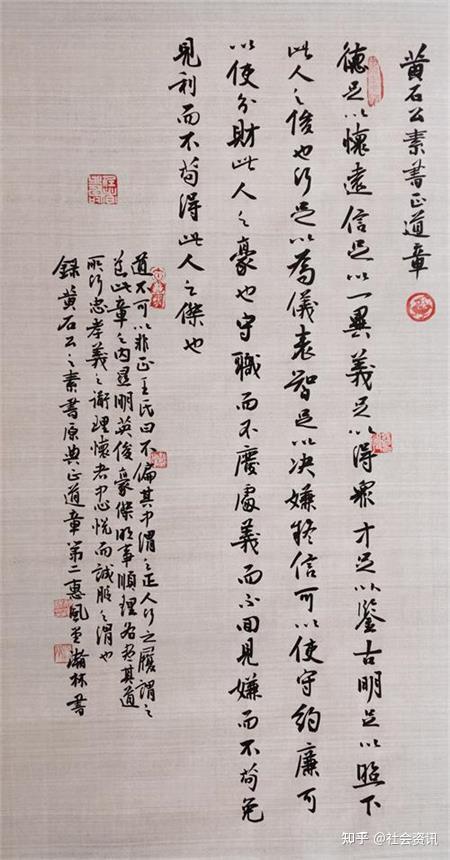 黄石公素書正道章
德足以懷遠信足以一異義足以得眾才足以鑒古明足以照下
此人之俊也行足以為儀表智足以决嫌疑信可以使守約廉可
以使分財此人之豪也守職而不廢處義而不回見嫌而不苟免
見利而不苟得此人之傑也
道不可以非正王氏曰不偏其中謂之正人行之履謂之
道此章之内顯明英俊豪傑明事順理各盡其道
所行忠孝義之謝理懷者中心悦而誠服之謂也
錄黄石公之素書原典正道章第二惠風堂瀚林書
知乎 @社会资讯